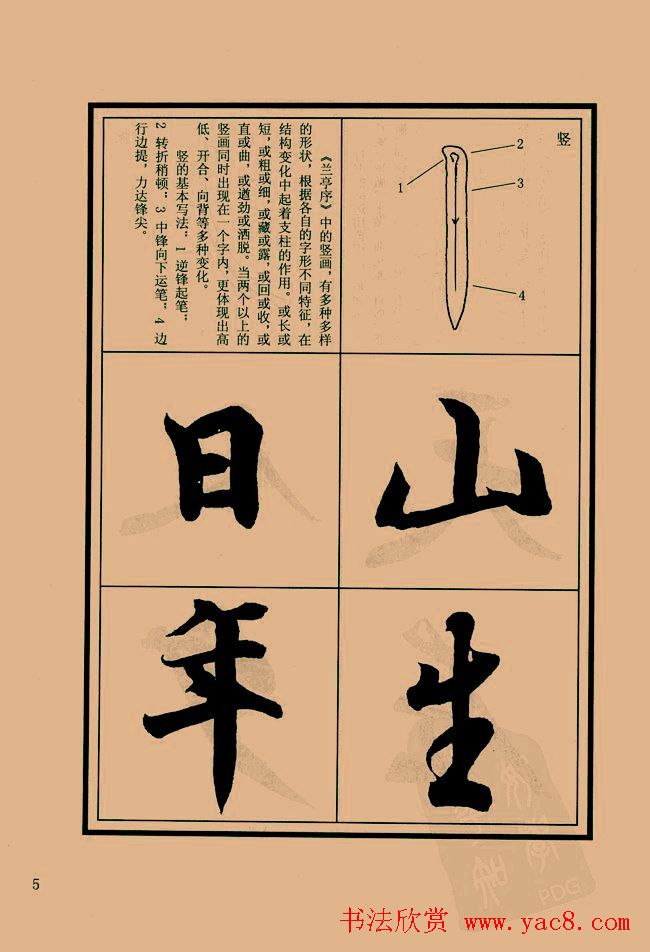 竖
1
2
3
4
《兰亭序》中的竖画，有多种多样
的形状，根据各自的字形不同特征，在
结构变化中起着支柱的作用。或长或
短，或粗或细，或藏或露，或回或收，或
直或曲，或遒劲或洒脱。当两个以上的
竖画同时出现在一个字内，更体现出高
低、开合、向背等多种变化。
竖的基本写法：1 逆锋起笔；
2 转折稍顿；3 中锋向下运笔；4 边
行边提，力达锋尖。
山
日
生
年
5
PDG
书法欣赏 www.yac8.com